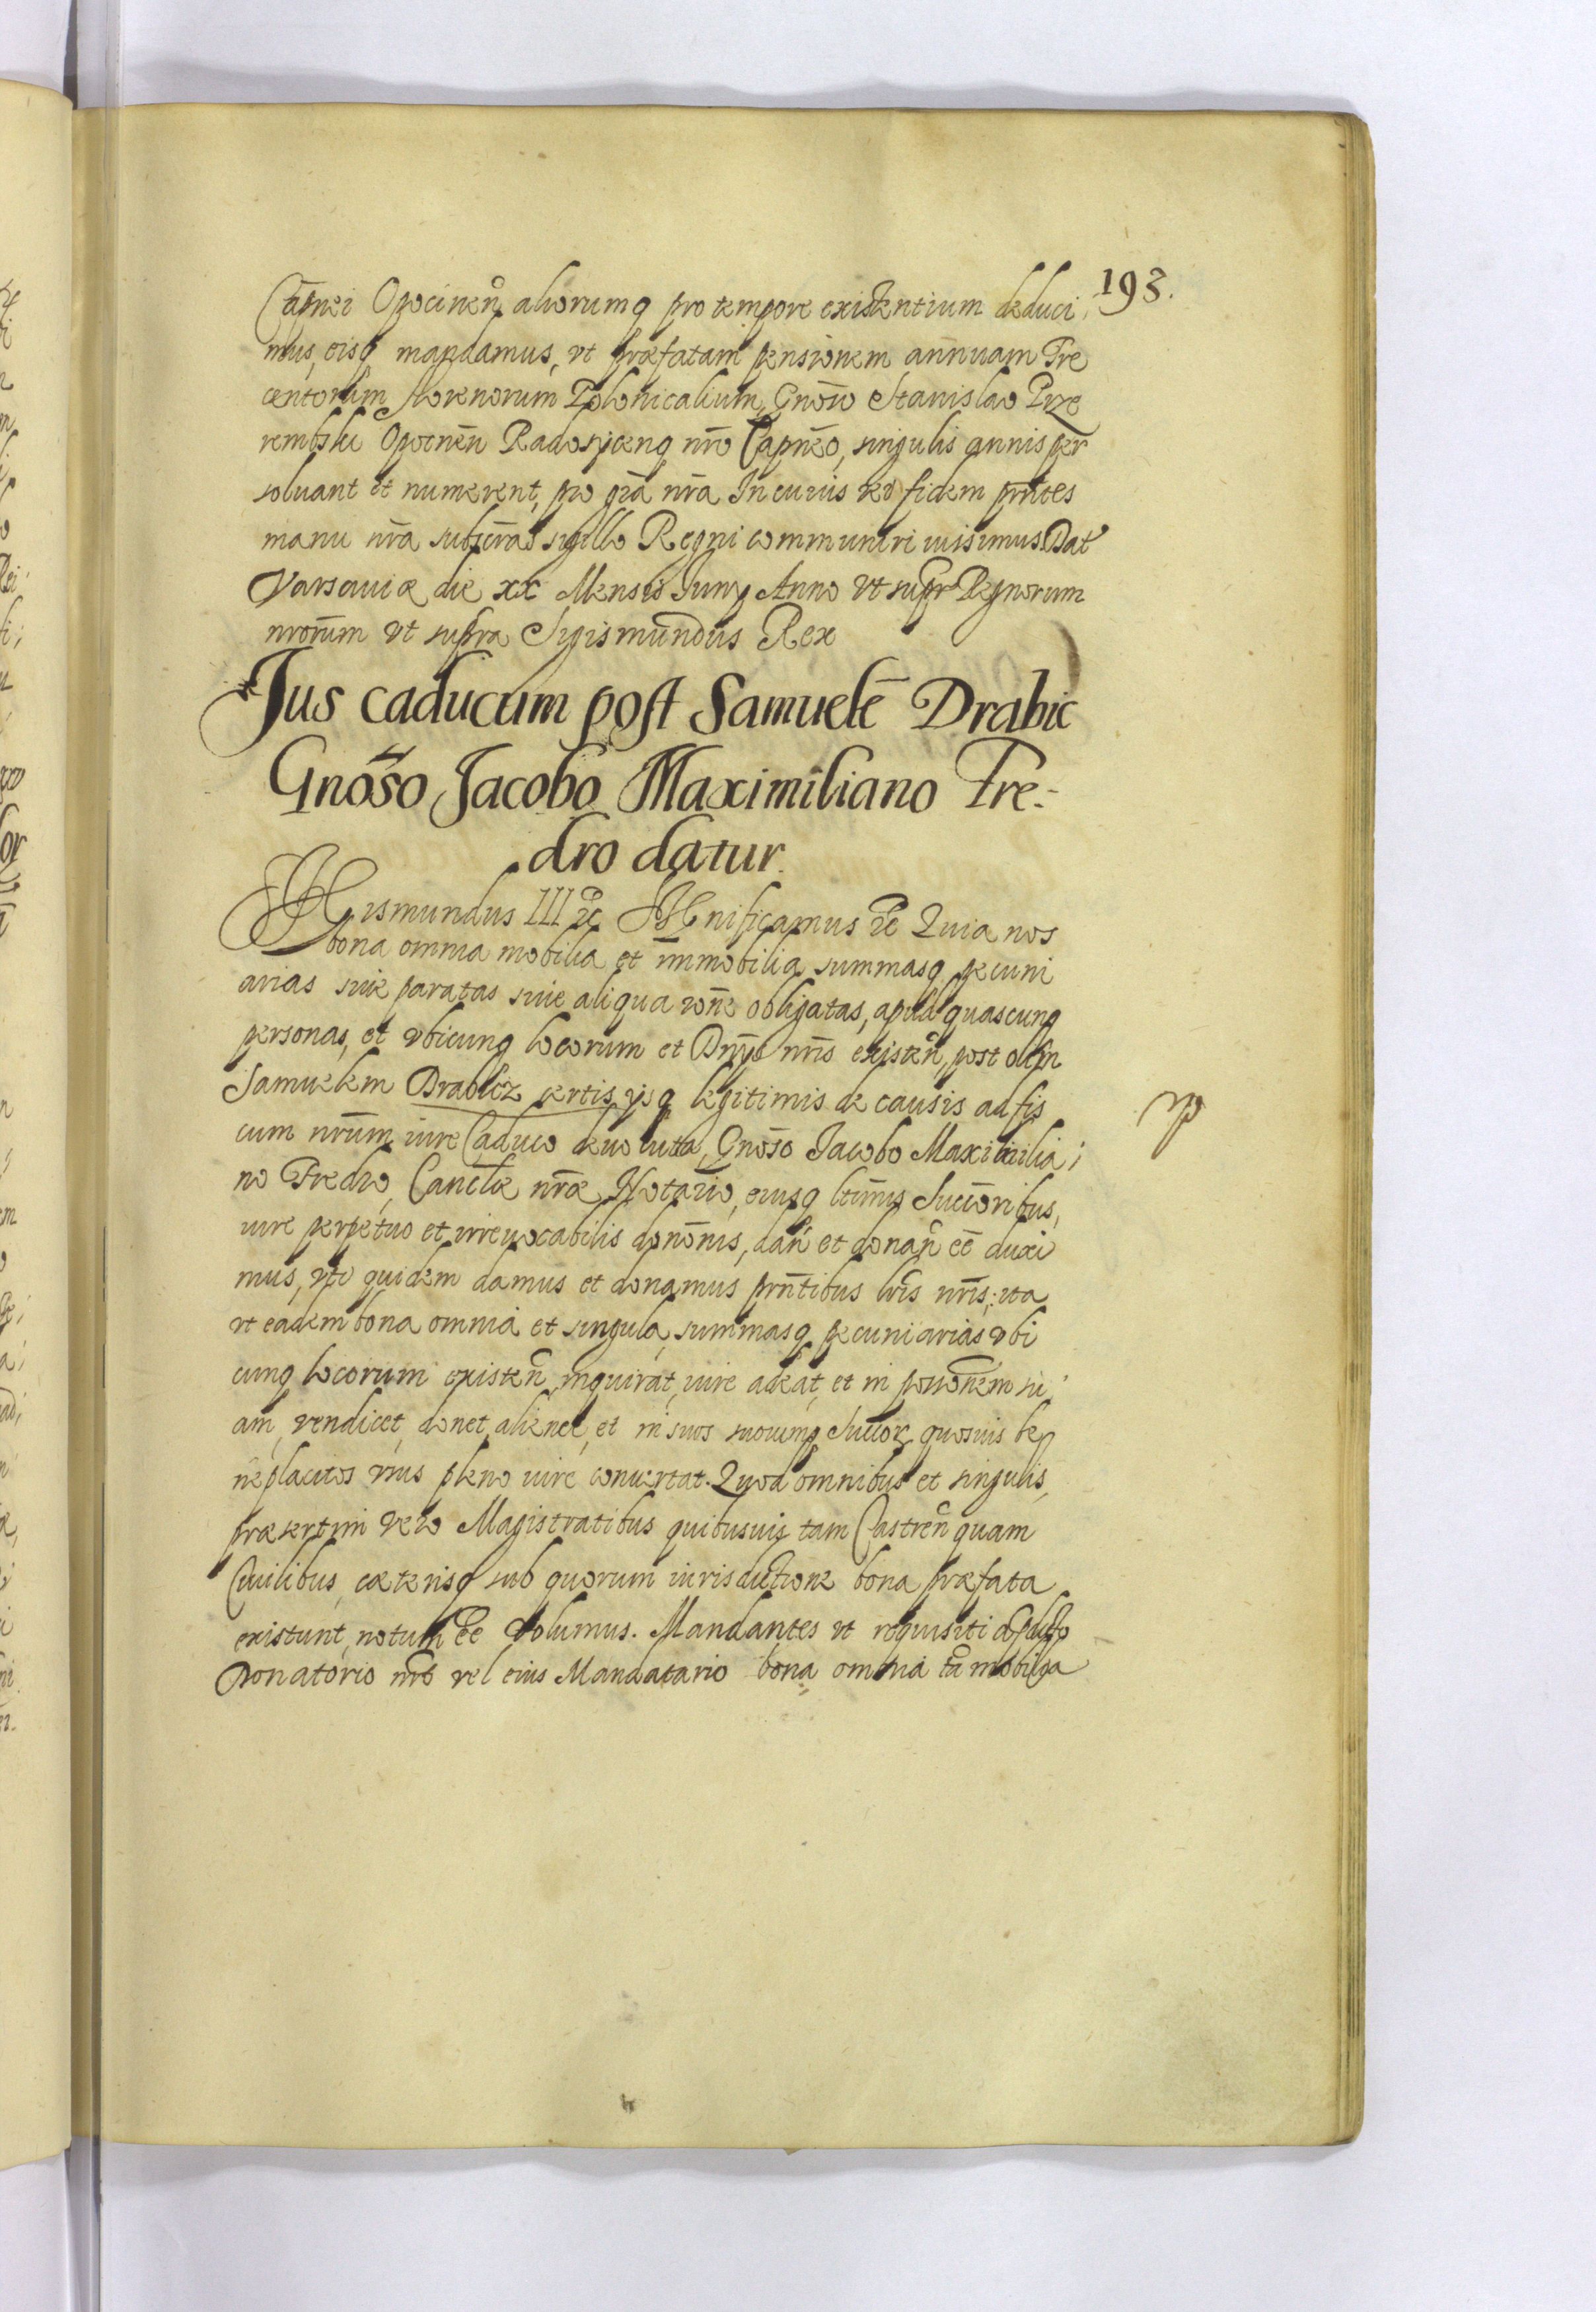 193.
Capnei Opocinen̄ aliorumq pro tempore existentium deduci
mus, eisq mandamus, vt præfatam pensionem annuam Tre
centorum florenorum Polonicalium, Gnōso Stanislao Prze
rembski Opocnēn Radosijcenq nr̄o Capnēo, singulis annis per
soluant et numerent, pro grā nr̄a In cuius rei fidem prn̄tes
manu nr̄a subscrās sigillo Regni communiri iussimus Dat
Varsauiæ die xx Mensis Juny Anno vt supr Regnorum
nrorūm vt supra Sigismundus Rex
Jus caducum post Samuelē Drabic
Gnōso Jacobo Maximiliano Fre-
dro datur.
Sigismundus III etc Significamus etc Quia nos
bona omnia mobilia et immobilia summasq pecuni
arias siue paratas siue aliqua rōne obligatas, apud quascunq
personas, et vbicunq locorum et Dnÿs nr̄is existen̄, post olim
Samuelem Drabicz certis ijsq legitimis de causis ad fis
cum nrūm iure Caduco deuoluta, Gnōso Jacobo Maximilia
no Fredro, Canclæ nr̄æ Notario, eiusq ltīmis Succōribus,
iure perpetuo et irreuocabilis donōnis, dan̄ et donan̄ eē duxi
mus, vti quidem damus et donamus prn̄tibus lrīs nr̄is; ita
vt eadem bona omnia et singula, summasq pecuniarias vbi
cunq locorum existen̄, inquirat, iure adeat, et in possonēm su
am, vendicet, donet, alienet, et in suos suorumq Succor quosuis be
neplacitos vsus pleno iure conuertat. Quod omnibus et singulis,
præsertim vero Magistratibus quibusuis tam Castren̄ quam
Ciuilibus, cæterisq sub quorum iurisdictione bona præfata
existunt, notum eē volumus. Mandantes vt requisiti a pdicto
Donatorio nr̄o vel eius Mandatario bona omnia tā mobilia